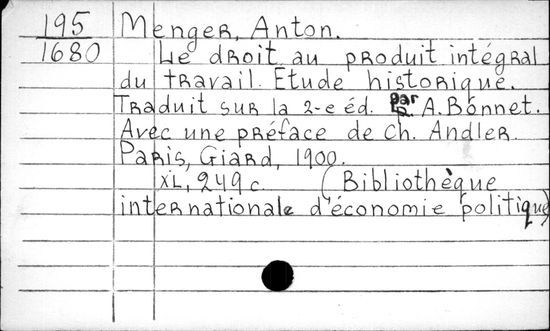 195 Menger, Anton.
1680 Le droit au produit intégral
du travail. Etude historique.
Traduit sur la 2-e éd. par A. Bonnet.
Avec une préface de Ch. Andler.
Paris, Giard, 1900.
XL, 249 c. (Bibliothèque
internationale d'économie politique)